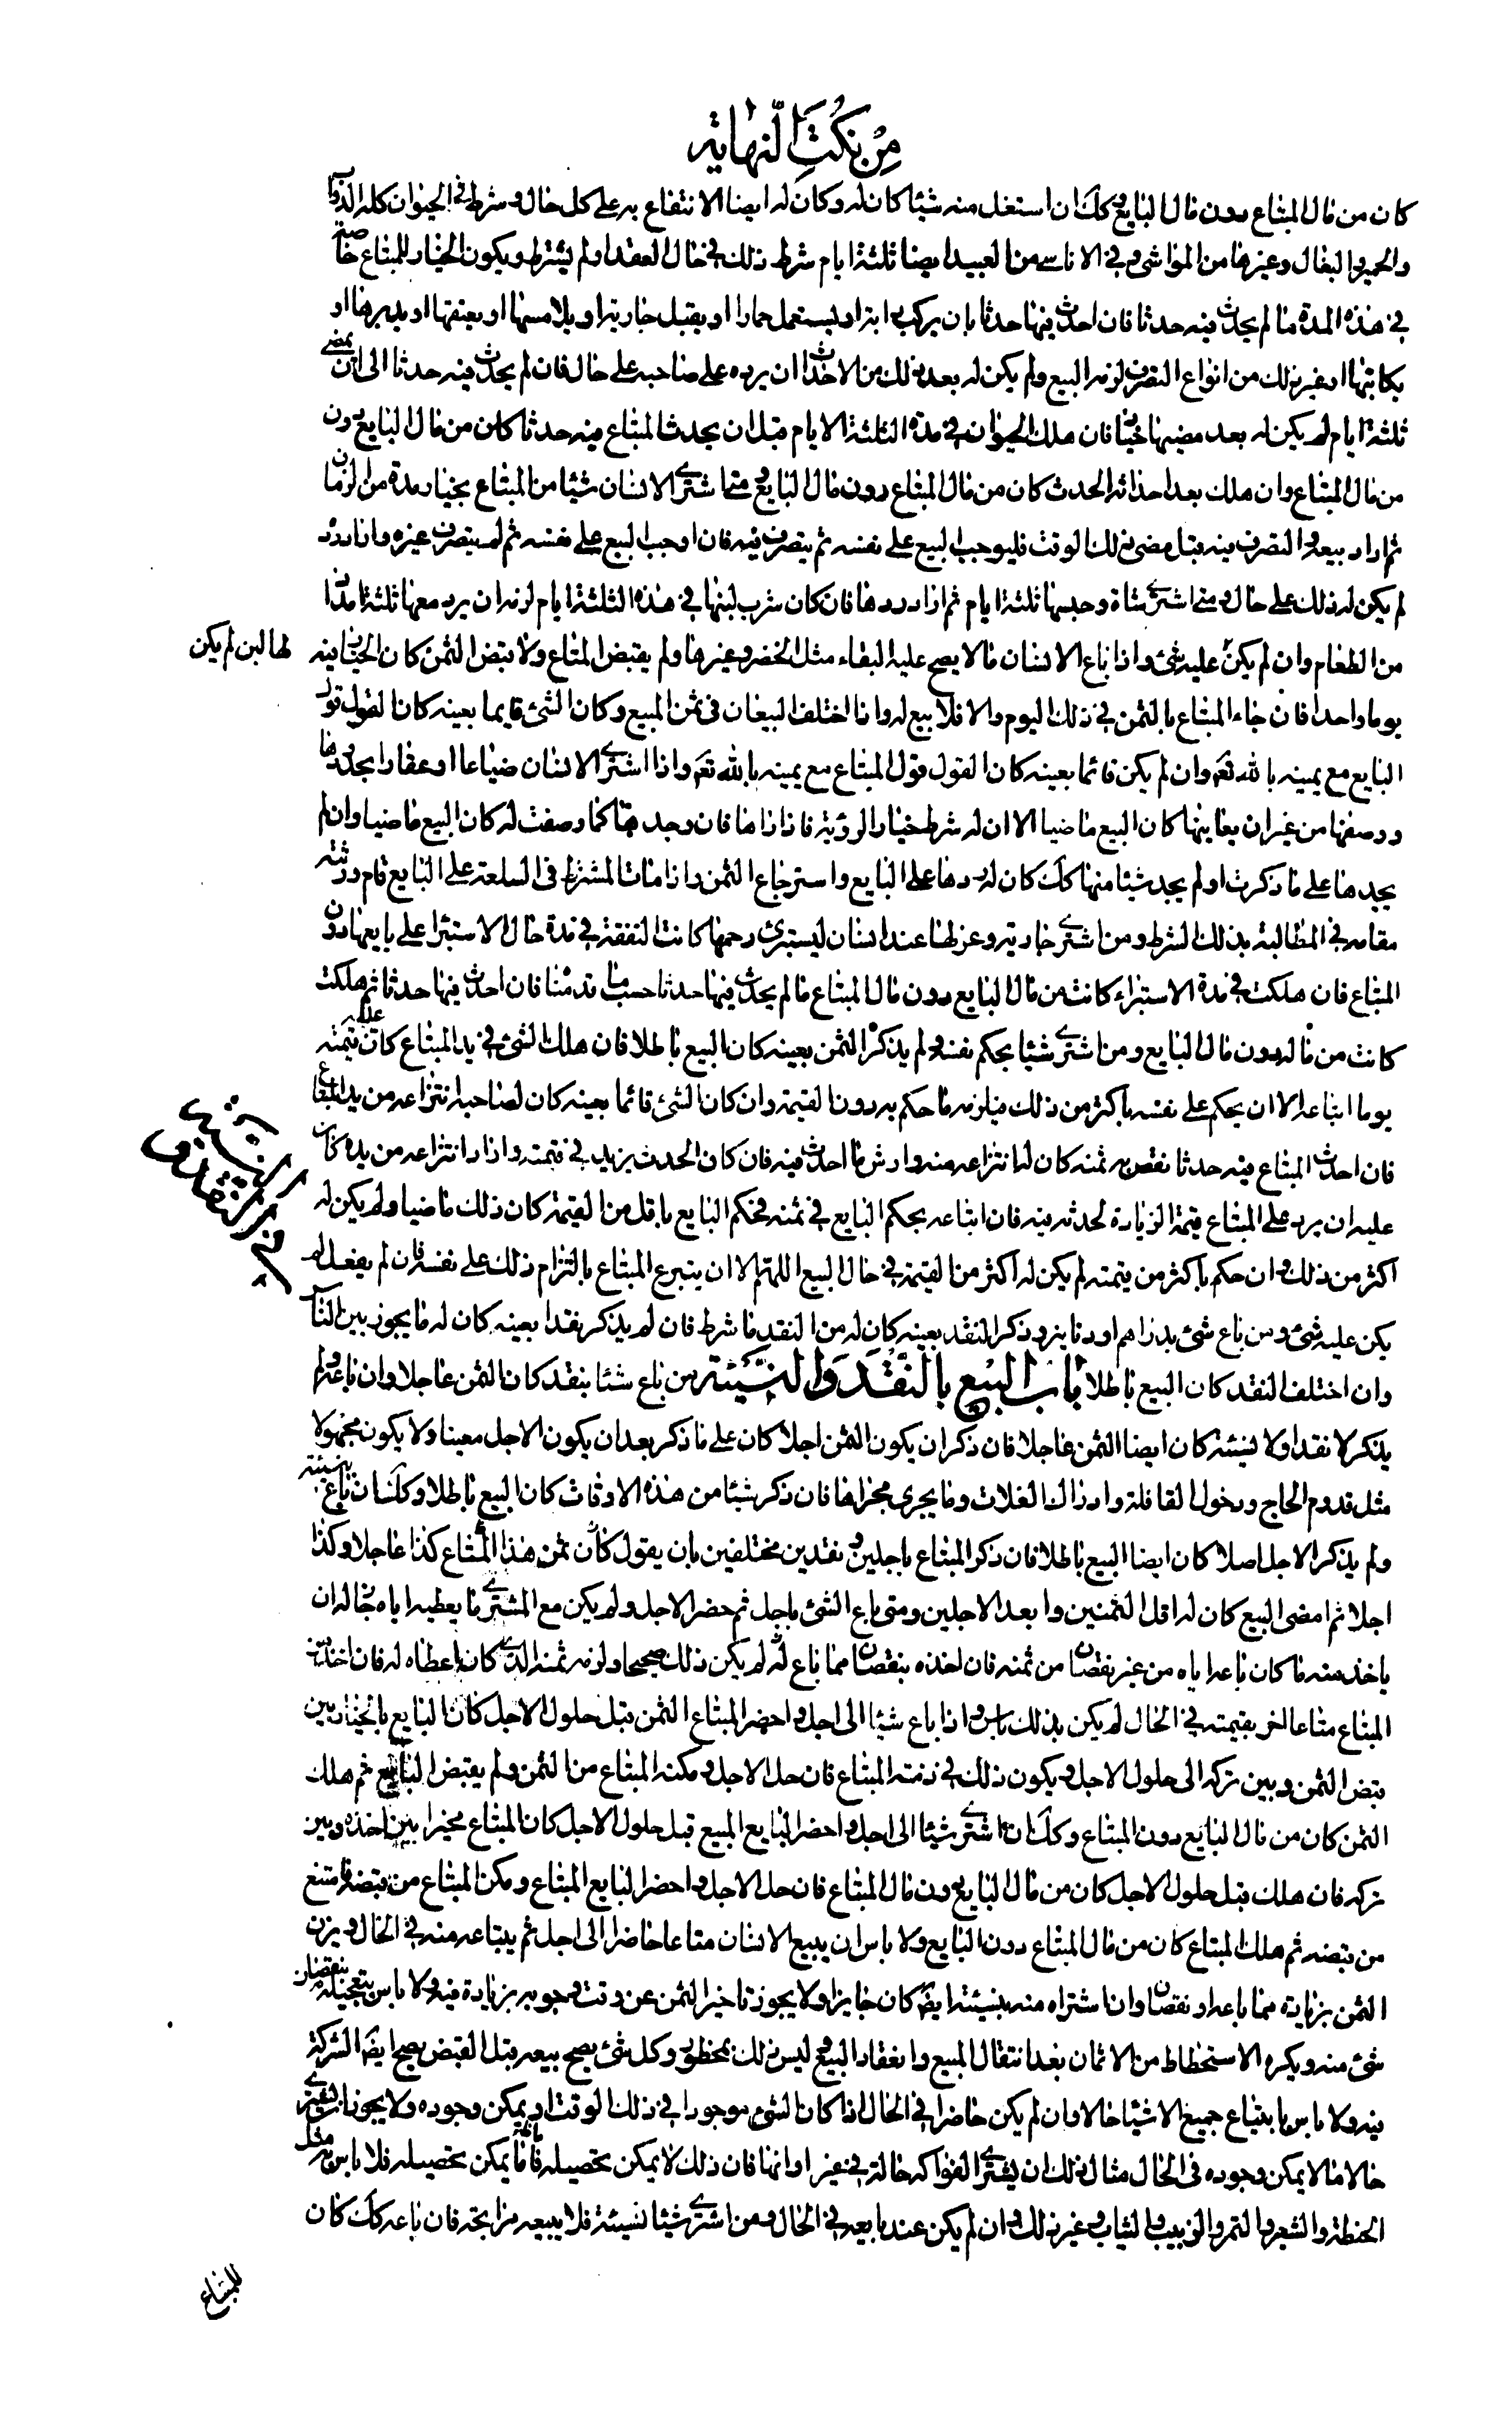 مِنْ نُكَتِ النهاية
كان من مال المبتاع دون مال البايع وكك ان استغل منه شيئا كان له وكان له ايضا الانتفاع به على كل حال وشرط في الحيوان كله الدواب
والحمير والبغال وغيرها من المواشي وفي الاناسي من العبيد ايضا ثلثة ايام شرط ذلك في حال العقد او لم يشترط ويكون الخيار للمبتاع خاصة
في هذه المدة ما لم يحدث فيه حدثا فان احدث فيها حدثا بان يركب دابة او يستعمل حمارا او يقبل جارية او يلامسها او يعتقها او يدبرها او
يكاتبها او غير ذلك من انواع التصرف لزمه البيع ولم يكن له بعد ذلك من الاحداث ان يرده على صاحبه على حال فان لم يحدث فيه حدثا الى ان يمضي
ثلثة ايام لم يكن له بعد مضيها خيار فان هلك الحيوان في مدة الثلثة الايام قبل ان يحدث المبتاع فيه حدثا كان من مال البايع دون
من مال المبتاع وان هلك بعد احداثه الحدث كان من مال المبتاع دون مال البايع ومتى اشترى الانسان شيئا من المبتاع بخيار مدة من الزمان
ثم اراد بيعه والتصرف فيه قبل مضي ذلك الوقت فليوجب البيع على نفسه ثم يتصرف فيه فان اوجب البيع على نفسه ثم لم يتصرف غيره واراد رده
لم يكن له ذلك على حال ومتى اشترى شاة وحبسها ثلثة ايام ثم اراد ردها فان كان شرب لبنها في هذه الثلثة ايام لزمه ان يرد معها ثلثة امداد
من الطعام وان لم يكن عليه شئ واذا باع الانسان ما لا يصح عليه البقاء مثل الخضر وغيرها ولم يقبض المبتاع ولا قبض الثمن كان الخيار فيه
لها لبن لم يكن
يوما واحدا فان جاء المبتاع بالثمن في ذلك اليوم والا فلا بيع له واذا اختلف البيعان في ثمن المبيع وكان الشئ قايما بعينه كان القول قول
البايع مع يمينه بالله تعم وان لم يكن قائما بعينه كان القول قول المبتاع مع يمينه بالله تعم واذا اشترى الانسان ضياعا او عقارا بحدودها
ووصفها من غير ان يعاينها كان البيع ماضيا الا ان له شرط خيار الرؤية فاذا راها فان وجدها كما وصفت له كان البيع ماضيا وان لم
يجدها على ما ذكرت او لم يجد شيئا منها كك كان له ردها على البايع واسترجاع الثمن واذا مات المشترط في السلعة على البايع قام ورثته
مقامه في المطالبة بذلك الشرط ومن اشترى جارية وعزلها عند انسان ليستبرئ رحمها كانت النفقة في مدة حال الاستبراء على بايعها دون
المبتاع فان هلكت في مدة الاستبراء كانت من مال البايع دون مال المبتاع ما لم يحدث فيها حدثا حسب ما قدمنا فان احدث فيها حدثا ثم هلكت
كانت من ماله دون مال البايع ومن اشترى شيئا بحكم نفسه ولم يذكر الثمن بعينه كان البيع باطلا فان هلك الشئ في يد المبتاع كان عليه قيمته
يوم ابتاعه الا ان يحكم على نفسه باكثر من ذلك فيلزمه ما حكم به دون القيمة وان كان الشئ قائما بعينه كان لصاحبه انتزاعه من يد المبتاع
فان احدث المبتاع فيه حدثا نقص به ثمنه كان له انتزاعه منه وارش ما احدث فيه فان كان الحدث يزيد في قيمته واراد انتزاعه من يده كان
عليه ان يرد على المبتاع قيمة الزيادة لحدثه فيه فان ابتاعه بحكم البايع في ثمنه فحكم البايع باقل من القيمة كان ذلك ماضيا ولم يكن له
اكثر من ذلك وان حكم باكثر من قيمته لم يكن له اكثر من القيمة في حال البيع اللهم الا ان يتبرع المبتاع بالتزام ذلك على نفسه فان لم يفعل لم
يكن عليه شئ ومن باع شئ بدراهم او دنانير وذكر النقد بعينه كان له من النقد ما شرط فان لم يذكر نقدا بعينه كان له ما يجوز بين الناس
وان اختلف النقد كان البيع باطلا بَابُ الْبَيْعِ بِالنَّقْدِ وَالنَّسِيئَةِ من باع شيئا بنقد كان الثمن عاجلا وان باع ولم
يذكر لا نقدا ولا نسيئة كان ايضا الثمن عاجلا فان ذكر ان يكون الثمن اجلا كان على ما ذكر بعد ان يكون الاجل معينا ولا يكون مجهولا
مثل قدوم الحاج ودخول القافلة وادراك الغلات وما يجري مجراها فان ذكر شيئا من هذه الاوقات كان البيع باطلا وكك ان باع بنسيئة
ولم يذكر الاجل اصلا كان ايضا البيع باطلا فان ذكر المبتاع باجلين ونقدين مختلفين بان يقول كان ثمن هذا المتاع كذا عاجلا وكذا
اجلا ثم امضى البيع كان له اقل الثمنين وابعد الاجلين ومتى باع الشئ باجل ثم حضر الاجل ولم يكن مع المشتري ما يعطيه اياه جاز له ان
ياخذ منه ما كان باعه اياه من غير نقصان من ثمنه فان اخذه بنقصان مما باع له لم يكن ذلك صحيحا ولزمه ثمنه الذي كان اعطاه له فان اخذ من
المبتاع متاعا اخر بقيمته في الحال لم يكن بذلك باس واذا باع شيئا الى اجل واحضر المبتاع الثمن قبل حلول الاجل كان البايع بالخيار بين
قبض الثمن وبين تركه الى حلول الاجل ويكون ذلك في ذمة المبتاع فان حل الاجل ومكنه المبتاع من الثمن ولم يقبض البايع ثم هلك
الثمن كان من مال البايع دون المبتاع وكك ان اشترى شيئا الى اجل واحضر البايع المبيع قبل حلول الاجل كان المبتاع مخيرا بين اخذه وبين
تركه فان هلك قبل حلول الاجل كان من مال البايع دون مال المبتاع فان حل الاجل واحضر البايع المبتاع ومكن المبتاع من قبضه فامتنع
من قبضه ثم هلك المبتاع كان من مال المبتاع دون البايع ولا باس ان يبيع الانسان متاعا حاضرا الى اجل ثم يبتاعه منه في الحال ويزن
الثمن بزيادة مما باعه او نقصان وان اشتراه منه بنسيئة ايضا كان جايزا ولا يجوز تاخير الثمن عن وقت وجوبه بزيادة فيه ولا باس بتعجيله بنقصان
شئ منه ويكره الاستحطاط من الاثمان بعد انتقال المبيع وانعقاد البيع وليس ذلك بمحظور وكل شئ يصح بيعه قبل القبض يصح ايضا الشركة
فيه ولا باس بابتياع جميع الاشياء حالا وان لم يكن حاضرا في الحال اذا كان الشئ موجودا في ذلك الوقت او يمكن وجوده ولا يجوز ان يشترى
حالا ما لا يمكن وجوده في الحال مثال ذلك ان يشتري الفواكه حالة في غير اوانها فان ذلك لا يمكن تحصيله فاما ما يمكن تحصيله فلا باس به مثل
الحنطة والشعير والتمر والزبيب والثياب وغير ذلك وان لم يكن عند بايعه في الحال ومن اشترى شيئا نسيئة فلا يبيعه مرابحة فان باعه كك كان
للمبتاع